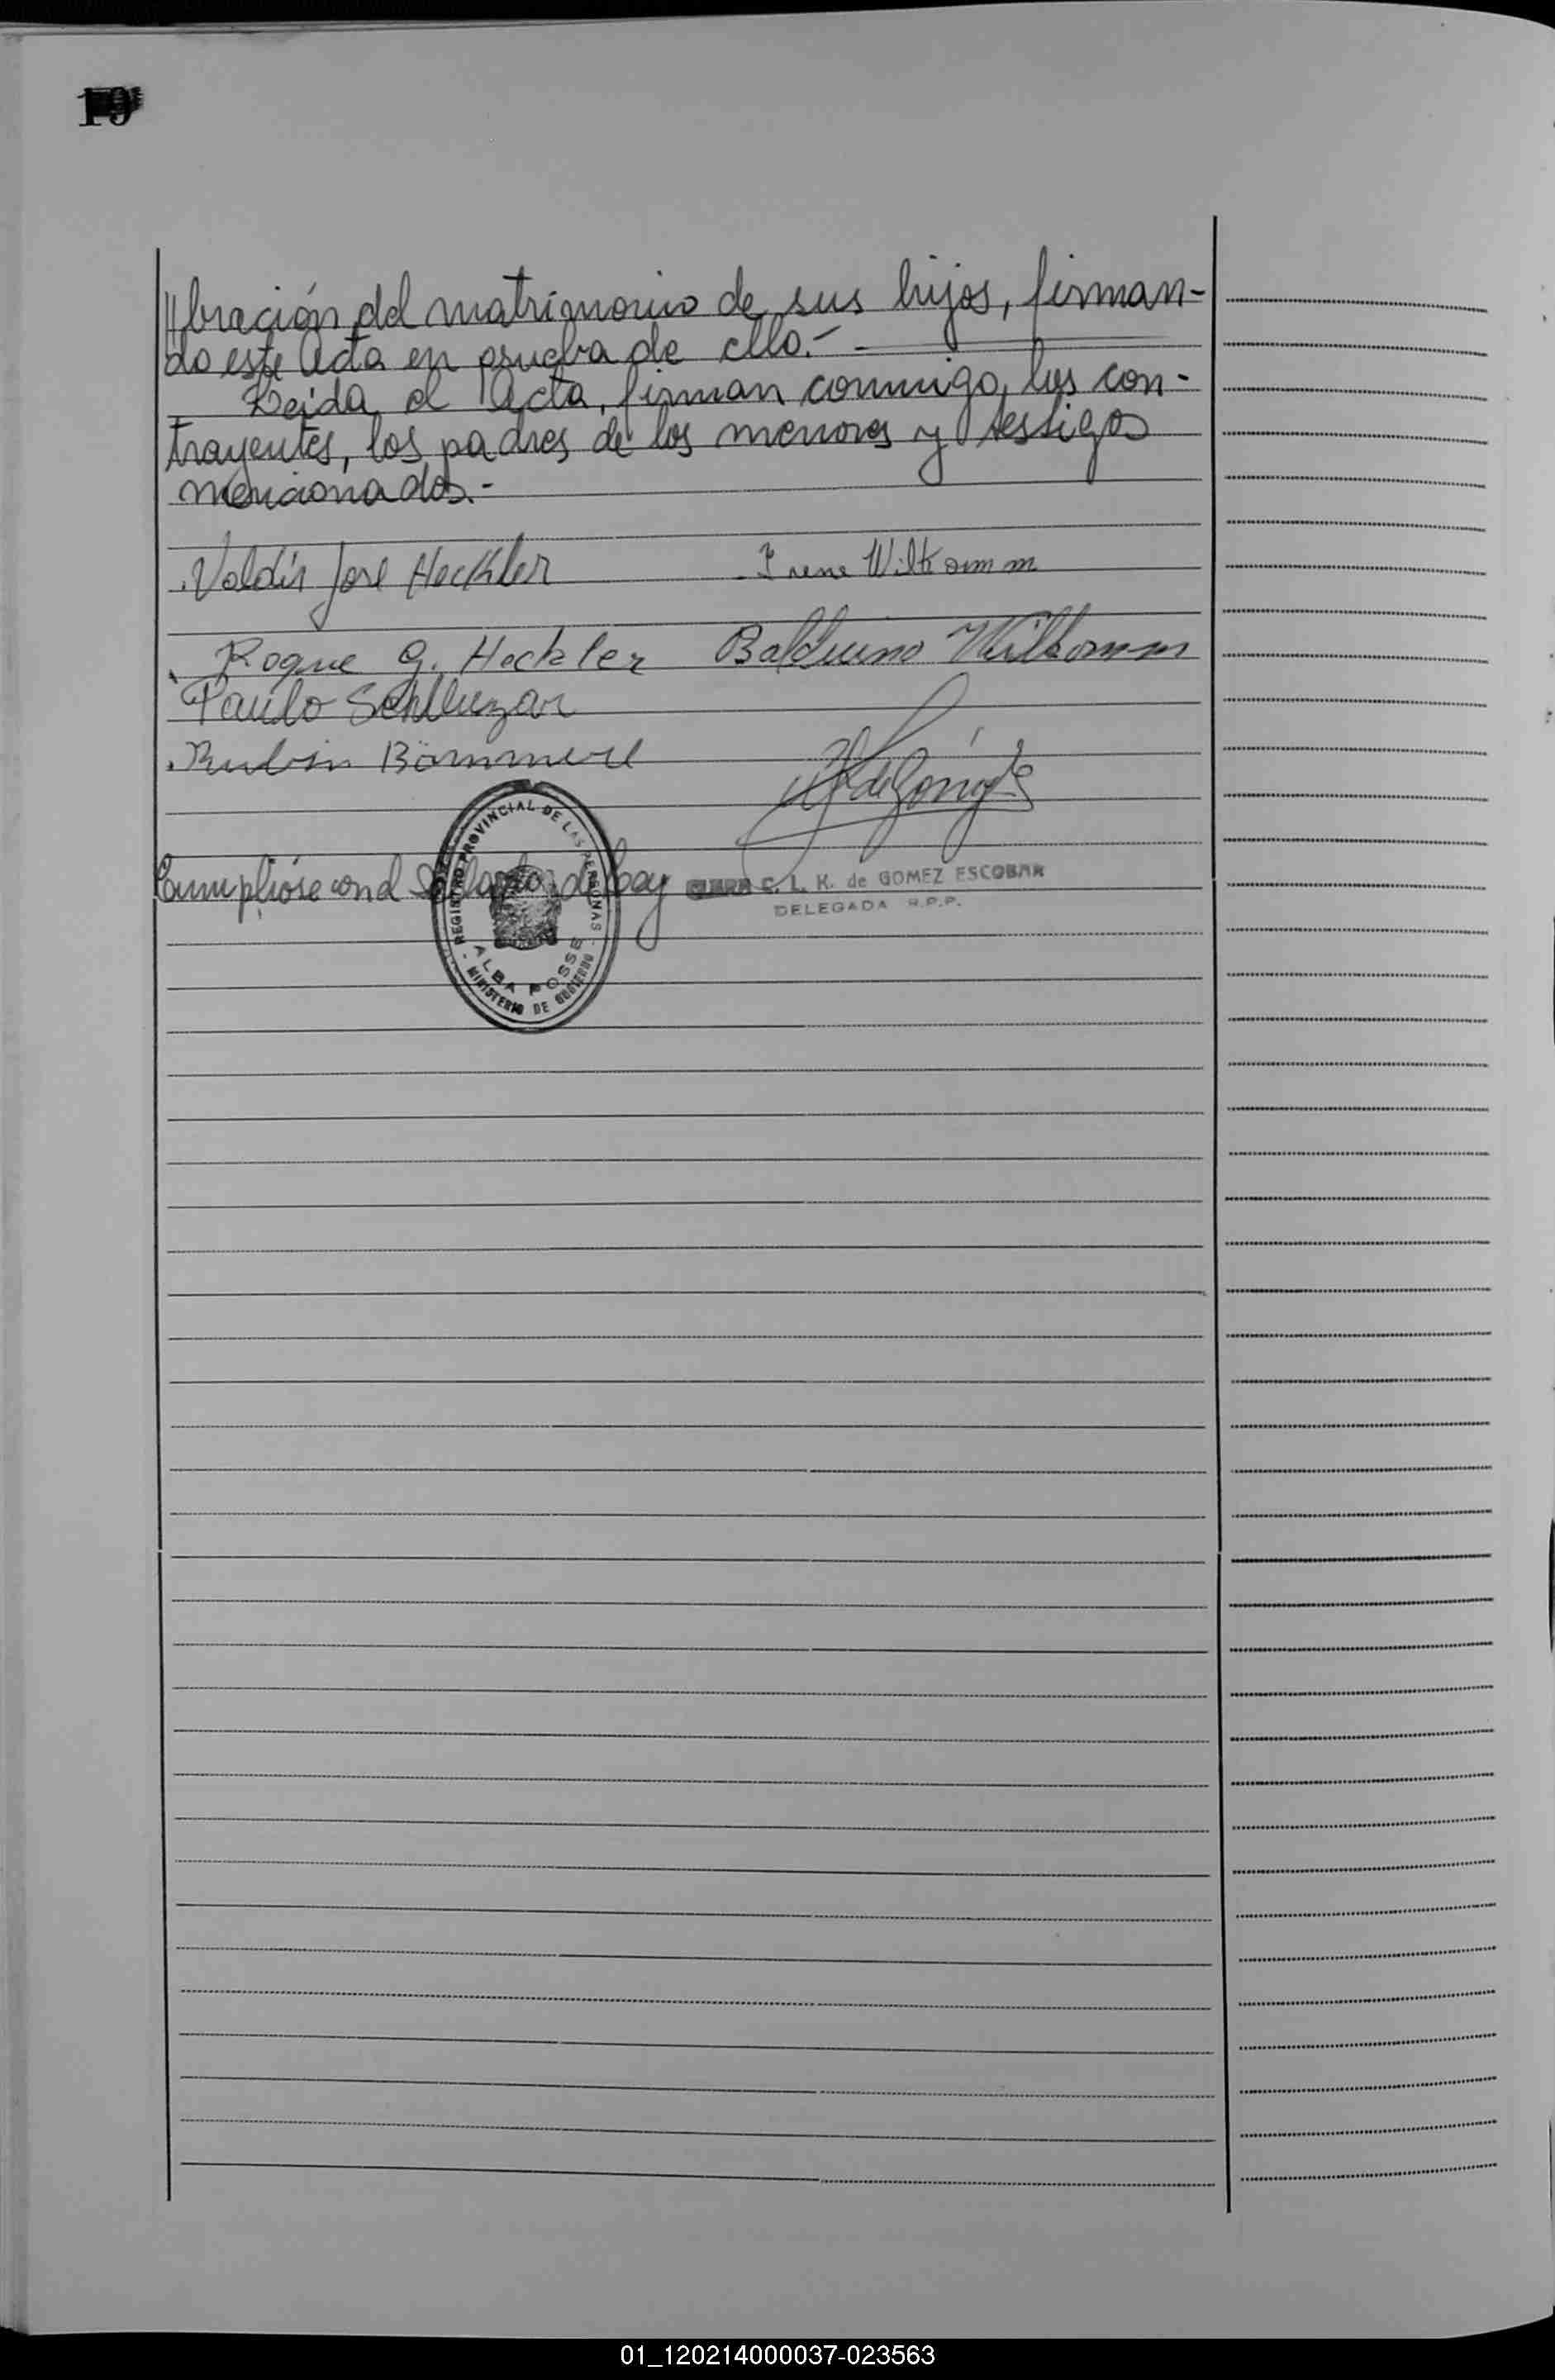 19
//bración del matrimonio de sus hijos, firman-
do este Acta en prueba de ello.-
Leida el Acta, firman conmigo, los con-
trayentes, los padres de los menores y testigos
mencionados.-
Valdir José Heckler Irene Wilkomm
Roque G. Heckler Balduino Wilkomm
Paulo
Rubin
REGISTRO PROVINCIAL DE LAS PERSONAS
ALBA POSSE
- MINISTERIO DE GOBIERNO -
Cumplióse con el Sellado de Ley
C. L. K. de GOMEZ ESCOBAR
DELEGADA R.P.P.
01_120214000037-023563